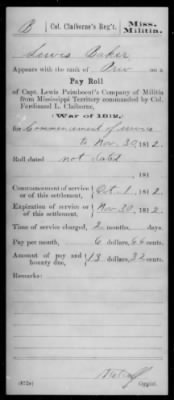 B
Col. Claiborne's Reg't.
Miss. Militia.
Lewis Baker
Appears with the rank of Priv on a
Pay Roll
of Capt. Lewis Paimboeuf's Company of Militia
from Mississippi Territory commanded by Col.
Ferdinand L. Claiborne,
(War of 1812,)
for Commencement of service
to Nov. 30, 1812.
Roll dated not dated
, 181 .
Commencement of service or of this settlement, Oct. 1, 1812.
Expiration of service or of this settlement, Nov. 30, 1812.
Term of service charged, 2 months days.
Pay per month, 6 dollars, 66 cents.
Amount of pay and bounty due, 13 dollars, 32 cents.
Remarks:
(572s)
Copyist.